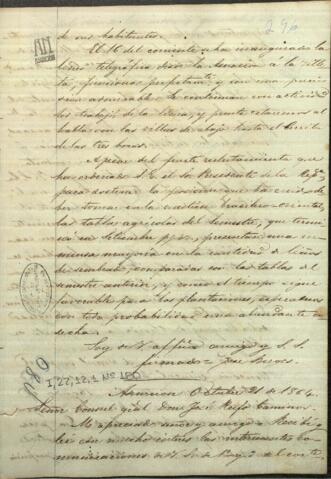 296
AN
ASUNCION
de sus habitantes.
El 16 del corriente se ha inaugurado la
linea telegráfica desde la Asuncion a la Villeta,
funciona perfectamente y con una precision
admirable. Se continuan con actividad
los trabajos de la linea, y pronto estaremos al
habla con las villas de abajo hasta el
de tres bocas.
Apesar del fuerte reclutamiento que
ha ordenado S. E. el Sor Presidente de la Repca
para sostener la posicion que ha creido de
ber tomar en la cuestion Oriental,
las tablas agricolas del semestre, que termi
nó en Setiembre ppdo, presentan una in
mensa mayoria en la cantidad de liños
de sembrado, comparadas con las tablas del
semestre anterior, y como el tiempo sigue
favorable para las plantaciones, esperamos
con toda probabilidad una abundante co
secha.
Soy de V. affmo amigo y S. S.
firmado = José Berges
Asuncion Octubre 21 de 1864.
Señor Consul gral Don José Rufo Caminos
Mi apreciado Señor y amigo = Recibi
y lei con mucho interes las interesantes co
municaciones de V. de
I,22,12,1 Nº 180